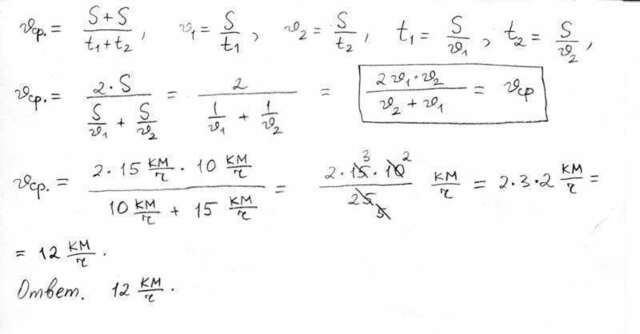 υср. = (S + S)/(t₁ + t₂), υ₁ = S/t₁, υ₂ = S/t₂, t₁ = S/υ₁, t₂ = S/υ₂,
υср. = (2 · S)/(S/υ₁ + S/υ₂) = 2/(1/υ₁ + 1/υ₂) = (2υ₁ · υ₂)/(υ₂ + υ₁) = υср
υср. = (2 · 15 км/ч · 10 км/ч)/(10 км/ч + 15 км/ч) = (2 · 15 3 · 10 2)/(25 5) км/ч = 2 · 3 · 2 км/ч =
= 12 км/ч.
Ответ. 12 км/ч.